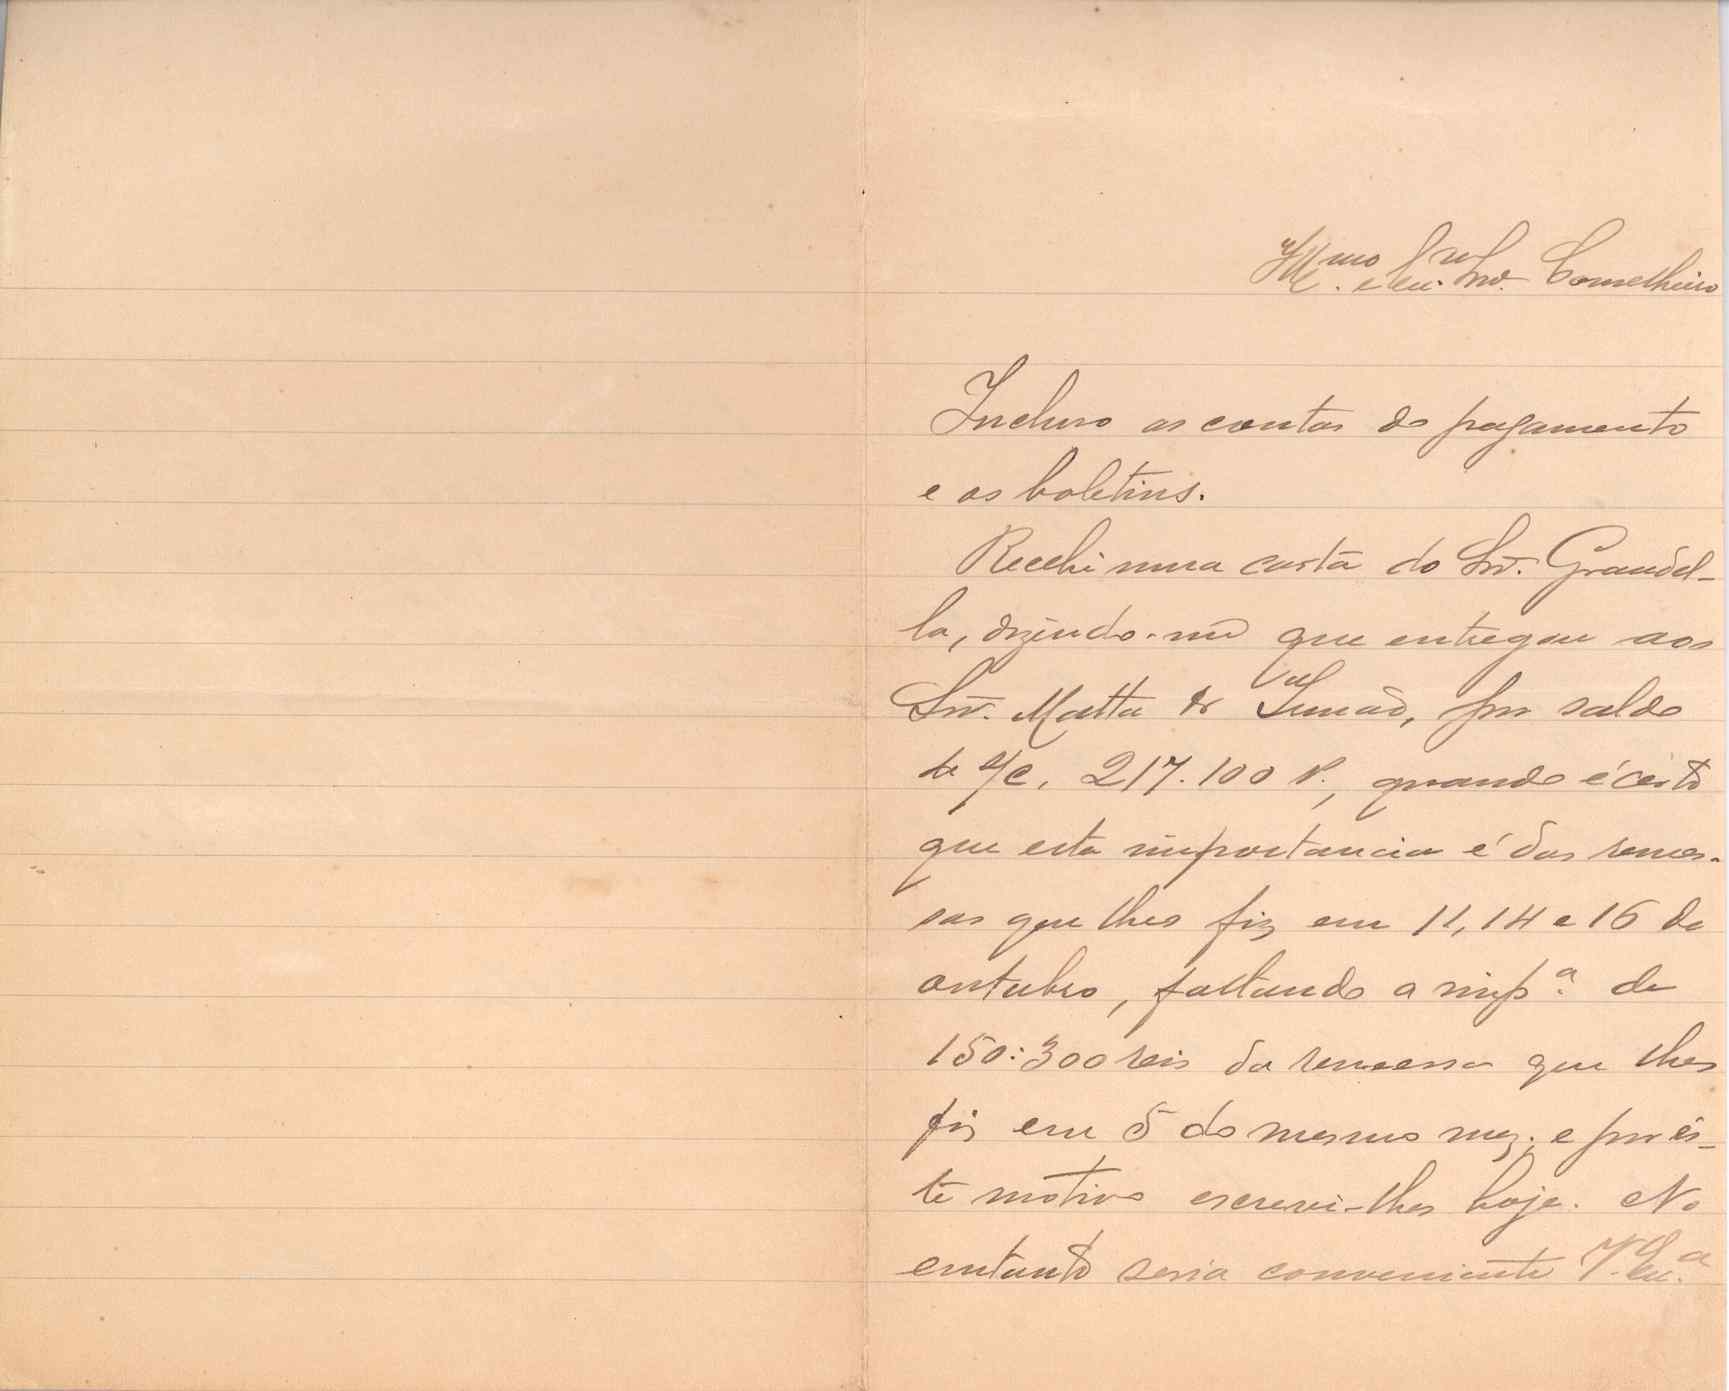 Illmo. e Exmo. Snr. Conselheiro
Incluso as contas do pagamento
e os boletins.
Recebi uma carta do Snr. Grandel-
la, dizendo-me que entregou aos
Snr. Matta & Irmão, por saldo
de s/c. 217.100 r., quando é certo
que esta importancia é das remes-
sas que lhes fiz em 11, 14 e 16 de
outubro, faltando a impª. de
150:300 reis da remessa que lhes
fiz em 5 do mesmo mez; e por és-
te motivo escrevi-lhes hoje. No
emtanto seria conveniente V. Exª.